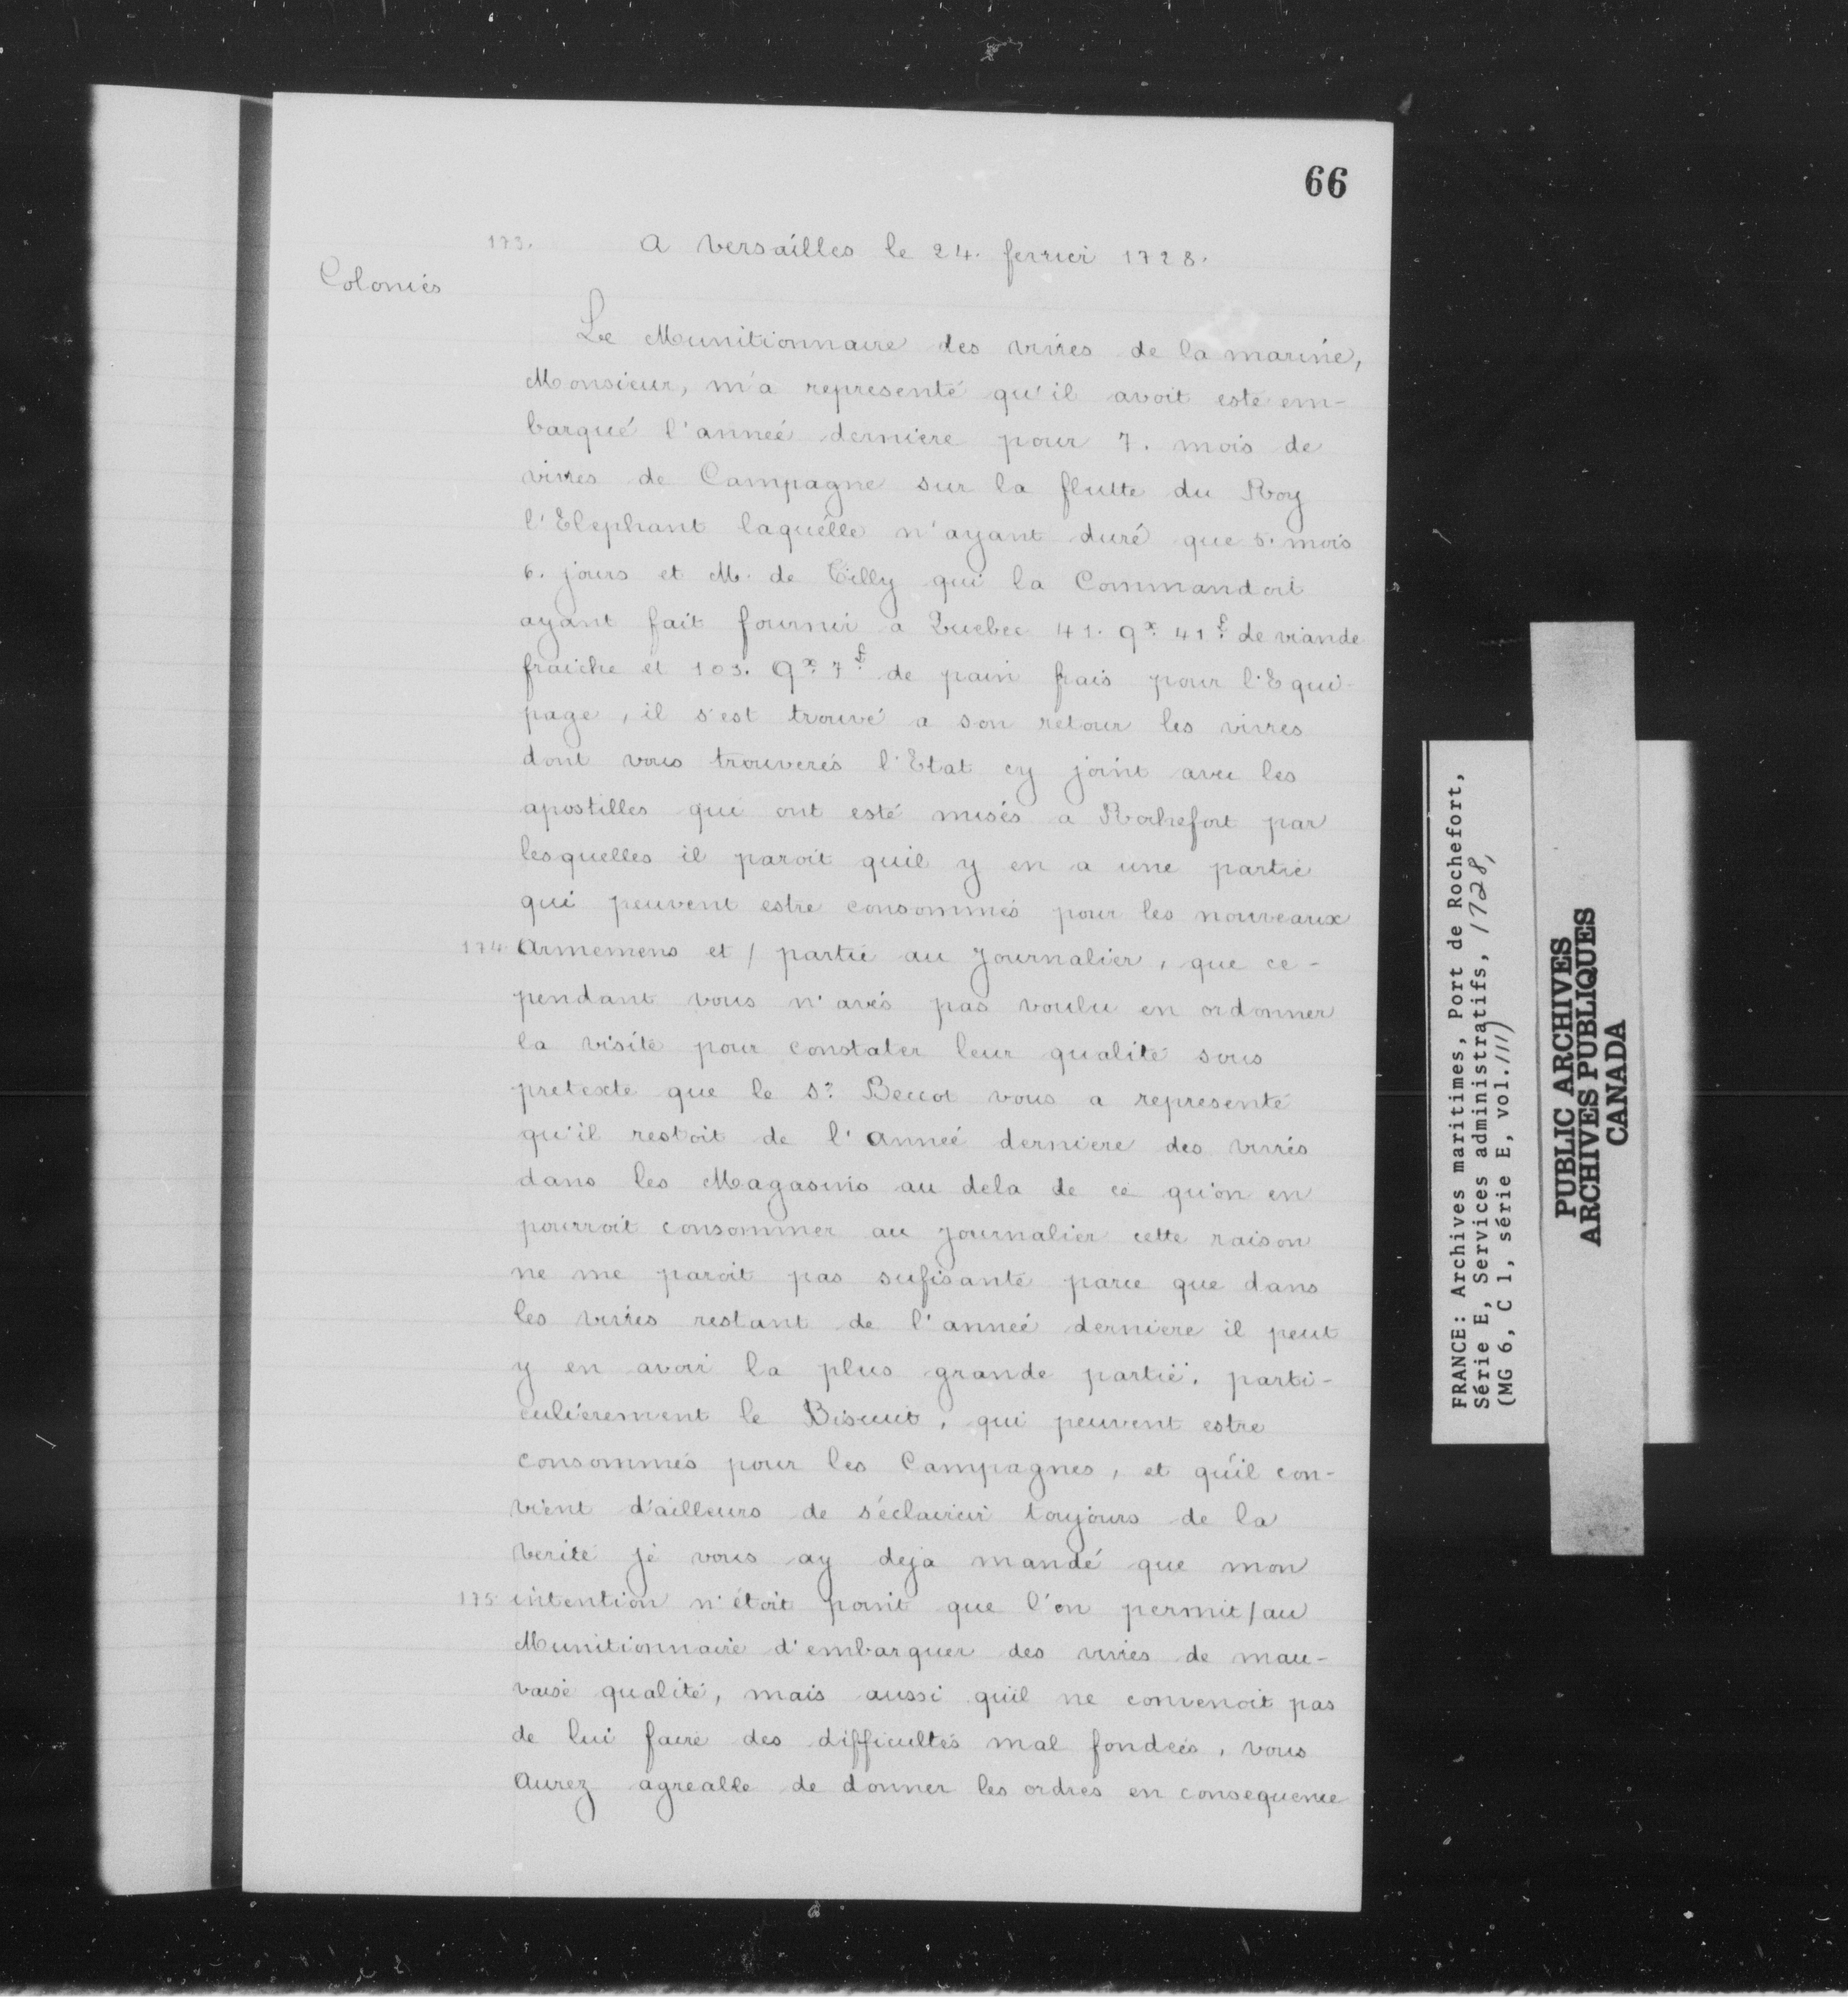 66
173. A Versailles le 24. fevrier 1728.
Colonies
Le Munitionnaire des vivres de la marine,
Monsieur, m'a representé qu'il avoit esté em-
barqué l'anneé derniere pour 7. mois de
vivres de Campagne sur la flutte du Roy
l'Elephant laquelle n'ayant duré que 5. mois
6. jours et M. de Tilly qui la Commandoit
ayant fait fournir a Quebec 41. qx 41 £ de viande
fraiche et 103. qx 7 £ de pain frais pour l'Equi-
page, il s'est trouvé a son retour les vivres
dont vous trouverés l'Etat cy joint avec les
apostilles qui ont esté misés a Rochefort par
lesquelles il paroit quil y en a une partie
qui peuvent estre consommés pour les nouveaux
174 Armemens et / partie au Journalier, que ce-
pendant vous n'avés pas voulu en ordonner
la visite pour constater leur qualité sous
pretexte que le Sr Beccot vous a representé
qu'il restoit de l'anneé derniere des vivrés
dans les Magasins au dela de ce qu'on en
pourroit consommer au journalier cette raison
ne me paroit pas sufisante parce que dans
les vivres restant de l'anneé derniere il peut
y en avoir la plus grande partie, parti-
culierement le Biscuit, qui peuvent estre
consommés pour les Campagnes, et qu'il con-
vient d'ailleurs de s'éclaircir toujours de la
verité je vous ay deja mandé que mon
175 intention n'étoit point que l'on permit / au
Munitionnaire d'embarquer des vivres de mau-
vaise qualité, mais aussi quil ne convenoit pas
de lui faire des difficultés mal fondeés, vous
Aurez agreable de donner les ordres en consequence
FRANCE: Archives maritimes, Port de Rochefort,
Série E, Services administratifs, 1728,
(MG 6, C 1, série E, vol.////)
PUBLIC ARCHIVES
ARCHIVES PUBLIQUES
CANADA